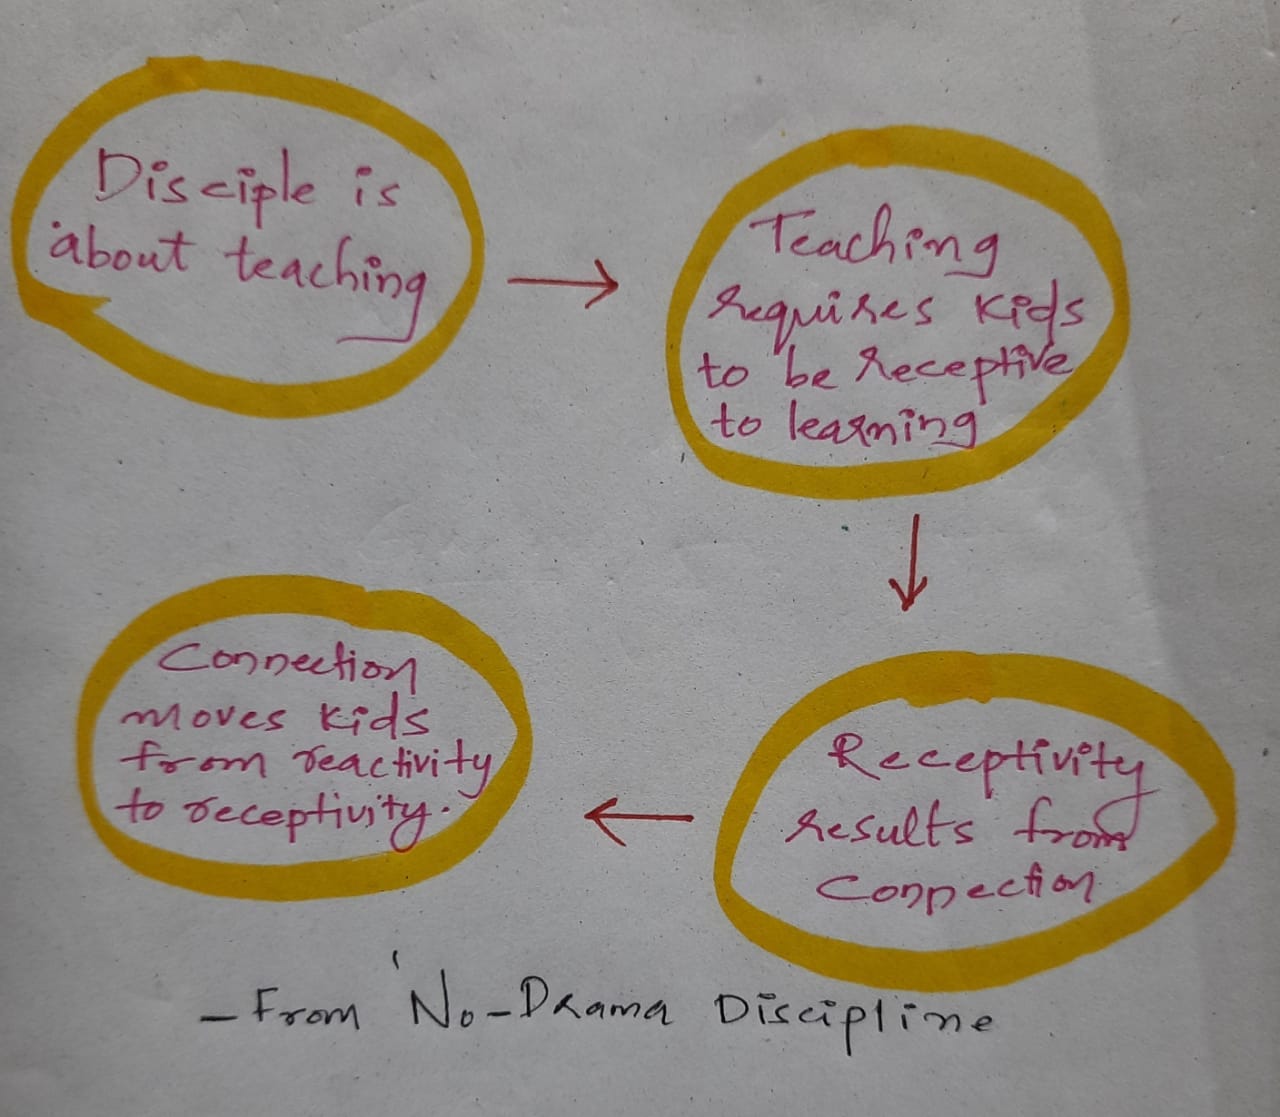 Disciple is
about teaching
Teaching
requires kids
to be receptive
to learning
Receptivity
results from
Connection
Connection
moves kids
from reactivity
to receptivity.
- From 'No-Drama Discipline